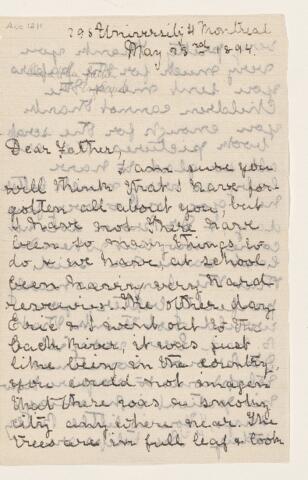 Acc 1211
298 University St Montreal
May 23rd 1894.
Dear Father,
I am sure you
will think that I have for-
gotten all about you, but
I have not there have
been so many things to
do & we have at school
been having very hard
reviewing. The other day
& I went out to the
back River, it was just
like being in the country,
you could not imagen
that there was a smoky
city any where near. The
trees are in full leaf & look